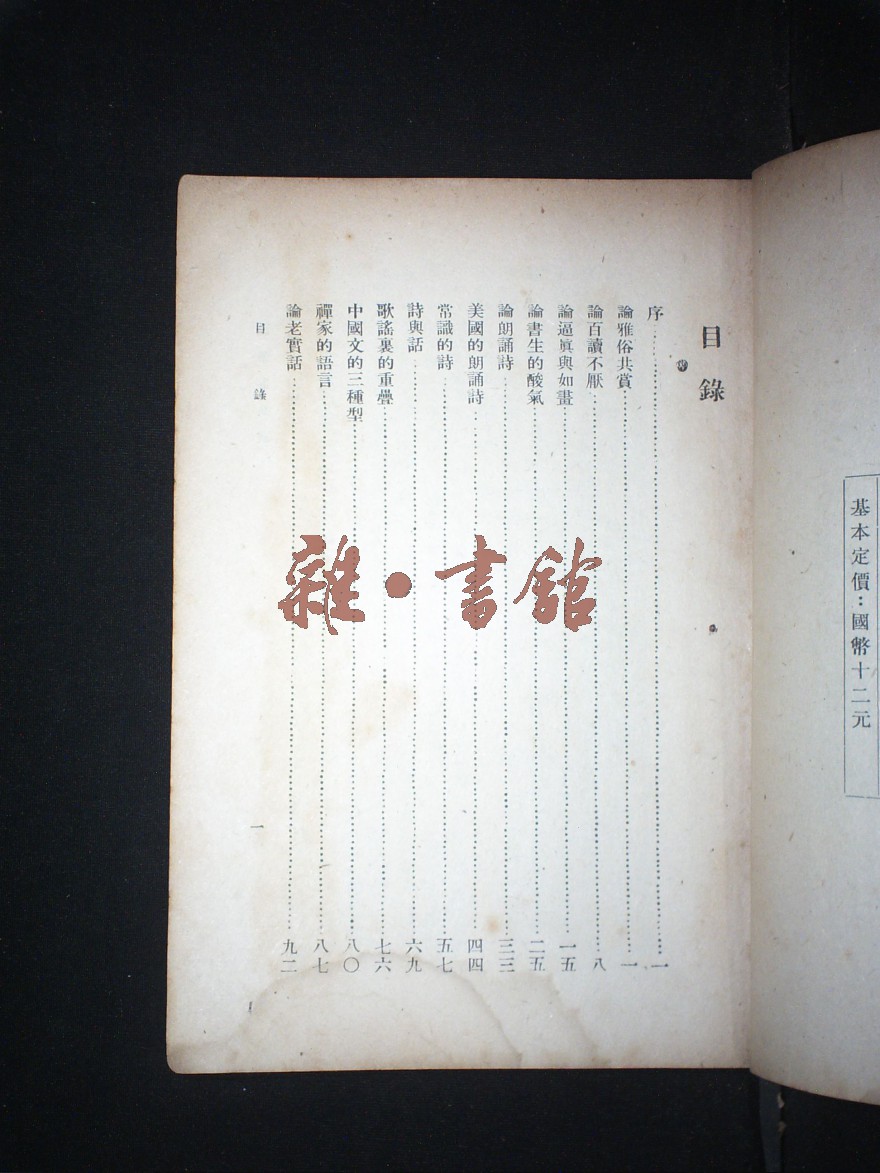 基本定價：國幣十二元
目錄
序……一
論雅俗共賞……一
論百讀不厭……八
論逼眞與如畫……一五
論書生的酸氣……二五
論朗誦詩……三三
美國的朗誦詩……四四
常識的詩……五七
詩與話……六九
歌謠裏的重疊……七六
中國文的三種型……八〇
禪家的語言……八七
論老實話……九二
目錄
一
雜•書館